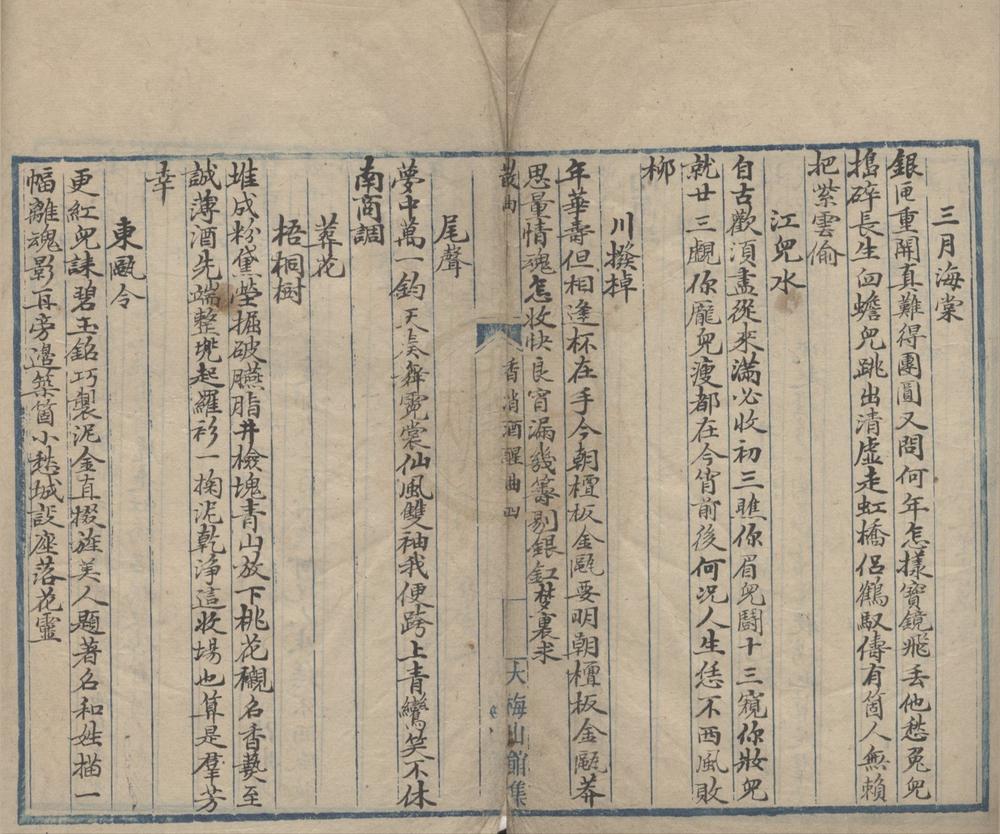 三月海棠
銀匣重開真難得團圓又問何年怎樣寶鏡飛丟他愁兔兒
搗碎長生血蟾兒跳出清虛走虹橋侶鶴馭儔有箇人無賴
把紫雲偷
江兒水
自古歡湏盡從來滿必收初三瞧你眉兒鬬十三窺你妝兒
就廿三覷你龐兒瘦都在今宵前後何况人生恁不西風敗
栁
川撥棹
年華壽但相逢杯在手今朝檀板金甌要明朝檀板金甌莽
思量情魂怎收快良宵漏幾籌剔銀釭梦裏求
散曲
香消酒醒曲四
大梅山館集
尾聲
夢中萬一鈞天奏舞霓裳仙風雙袖我便跨上青鸞笑不休
南商調
葬花
梧桐樹
堆成粉黛塋掘破臙脂井檢塊青山放下桃花櫬名香爇至
誠薄酒先端整兜起羅衫一掬泥乾淨這收場也算是羣芳
幸
東甌令
更紅兒誄碧玉銘巧製泥金直掇旌美人題著名和姓描一
幅離魂影再旁邊築箇小愁城設座落花靈